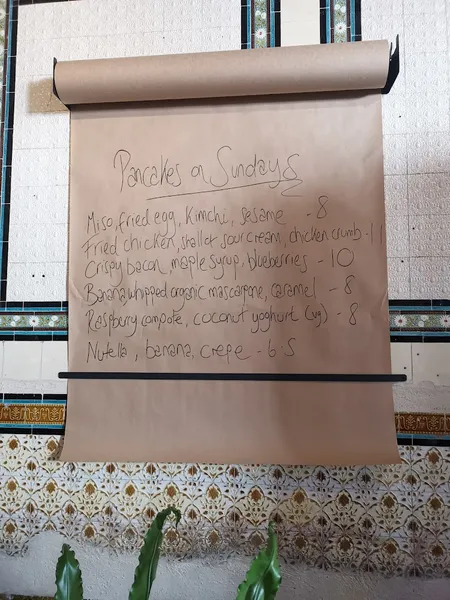 Pancakes on Sundays
Miso, fried egg, Kimchi, sesame - 8
Fried chicken, shallot sour cream, chicken crumb - 11
Crispy bacon, maple syrup, blueberries - 10
Banana whipped organic mascarpone, caramel - 8
Raspberry compote, coconut yoghurt (vg) - 8
Nutella, banana, crepe - 6.5